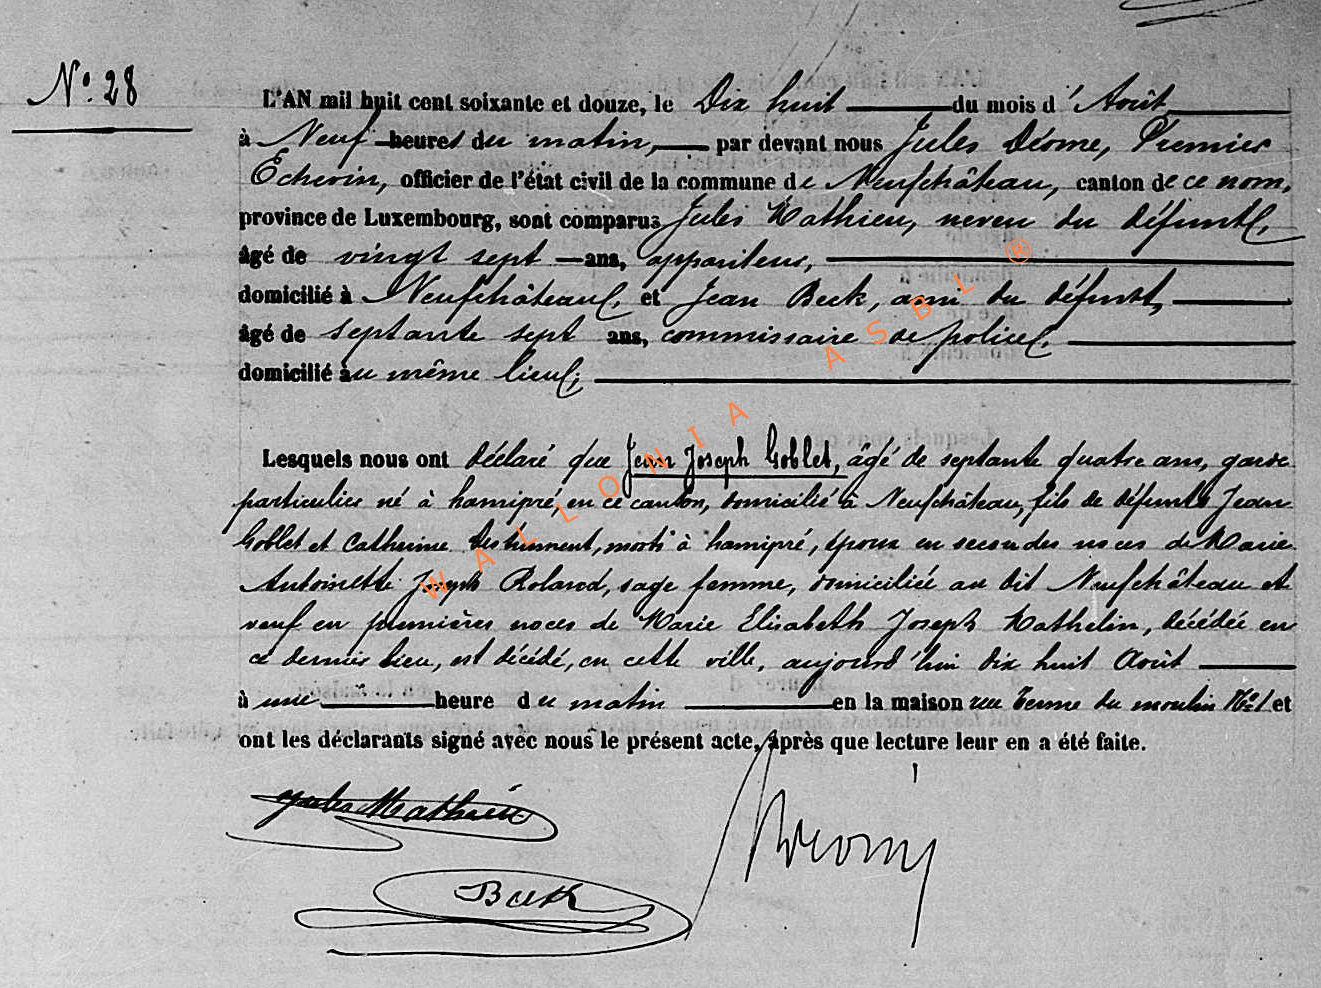 N°. 28
L'AN mil huit cent soixante et douze, le Dix huit du mois d'Août
à Neuf heures du matin, par devant nous Jules Déome, Premier
Echevin, officier de l'état civil de la commune de Neufchâteau, canton de ce nom,
province de Luxembourg, sont comparus Jules Mathieu, neveu du défunt,
âgé de vingt sept ans, appariteur,
domicilié à Neufchâteau, et Jean Beck, ami du défunt,
âgé de septante sept ans, commissaire de police,
domicilié au même lieu;
Lesquels nous ont déclaré que Jean Joseph Goblet, âgé de septante quatre ans, garde
particulier né à hamipré, en ce canton, domicilié à Neufchâteau, fils de défunts Jean
Goblet et Catherine, morts à hamipré, époux en secondes noces de Marie
Antoinette Joseph Roland, sage femme, domiciliée au dit Neufchâteau et
veuf en premières noces de Marie Elisabeth Joseph Mathelin, décédée en
ce dernier lieu, est décédé, en cette ville, aujourd'hui dix huit Août
à une heure du matin en la maison rue Terme du moulin N° 1 et
ont les déclarants signé avec nous le présent acte, après que lecture leur en a été faite.
Jules Mathieu
Beck
WALLONIA ASBL ®